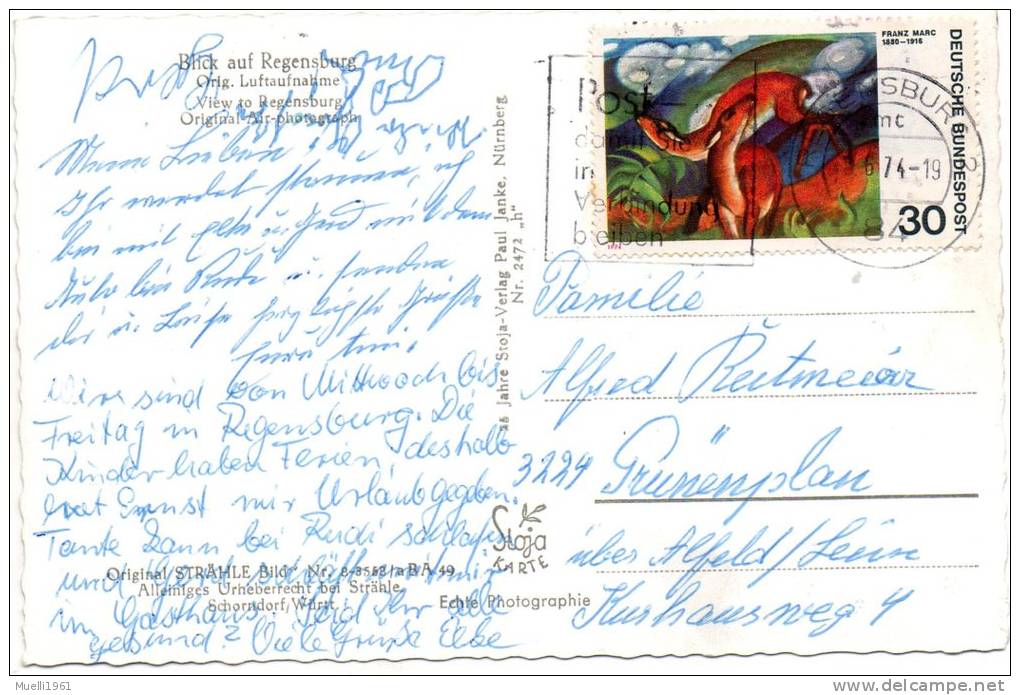 Blick auf Regensburg
Orig. Luftaufnahme
View to Regensburg
Original Air-photograph
Meine Lieben!
Ihr werdet staunen, ich
bin mit Elke u. Gerd mit dem
Auto bei Rudi u. senden
dir u. herzlichste Grüße
Eure
Wir sind von Mittwoch bis
Freitag in Regensburg. Die
Kinder haben Ferien, deshalb
hat Ernst mir Urlaub gegeben.
Tante kann bei Rudi schlafen
und wir
im Gasthaus. Seid Ihr alle
gesund? Viele Grüße Elke
Original STRÄHLE Bild Nr. 8-3552/a B A 49
Alleiniges Urheberrecht bei Strähle,
Schorndorf/Württ.
Echte Photographie
25 Jahre Stoja-Verlag Paul Janke, Nürnberg
Nr. 2472 „h"
Stoja
KARTE
FRANZ MARC
1880-1916
DEUTSCHE BUNDESPOST
30
Post
damit Sie
in
Verbindung
bleiben
74-19
84
Familie
Alfred Reitmeier
3224 Grünenplan
über Alfeld/Leine
Kurhausweg 4
Muelli1961
delcampe.net